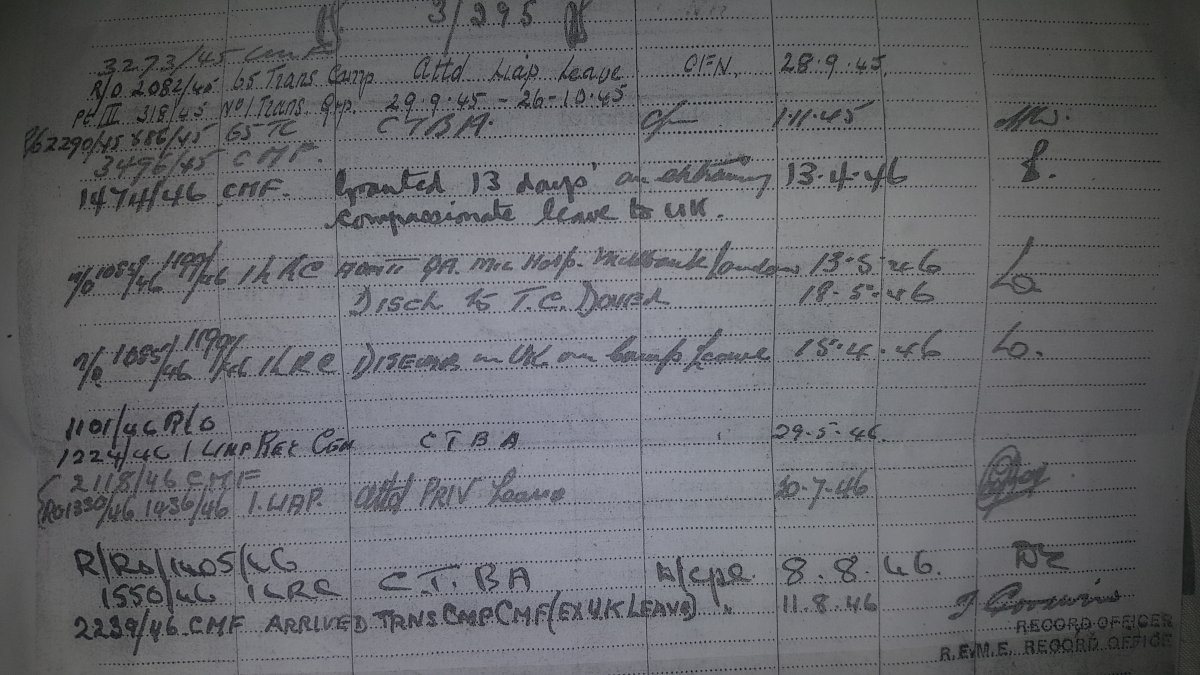 3/295
3273/45 CMF
R/O 2082/45 65 Trans Camp. attd Liap Leave CFN. 28.9.45
Pt III 318/45 No 1 Trans. Grp. 29.9.45 - 26-10-45
2290/45 686/45 65 TC C T B A. Cfn 1.11.45
3496/45 CMF.
1474/46 CMF. Granted 13 days' 13.4.46
compassionate leave to UK.
1085/46 1190/46 1 LRC Admtt QA. Mil Hosp. Millbank London 13-5-46
Disch to T.C. Dover 18-5-46
1085/46 1190/46 1 LRC in UK on Comp Leave 15.4.46 Lo.
1101/46 R/O
1224/46 1 C T B A 29-5-46.
2118/46 CMF
1330/46 1436/46 1. LIAP. attd PRIV Leave 20-7-46
R/Ro/1405/46
1550/46 1 LRC C.T.B A L/cpl 8.8.46.
2239/46 CMF ARRIVED TRNS CMP CMF (EX U.K LEAVE) " 11.8.46
RECORD OFFICER
R.E.M.E. RECORD OFFICE